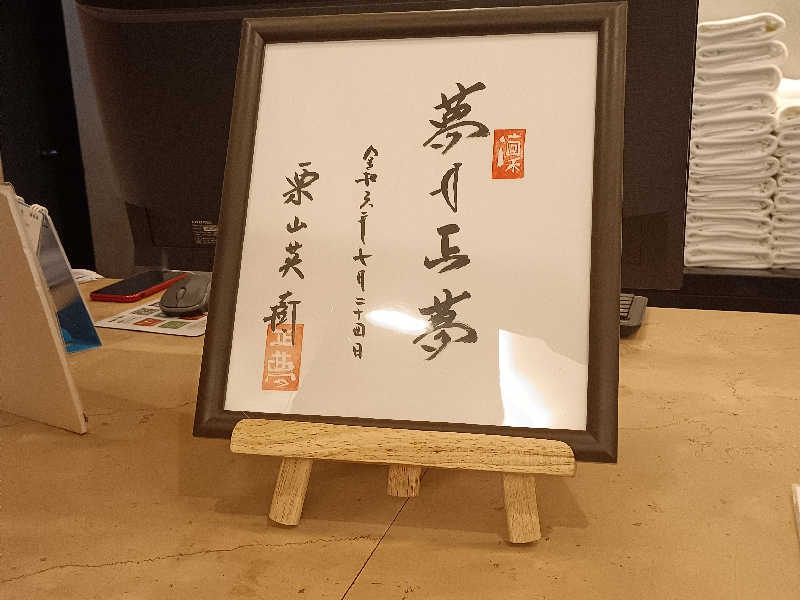 凜
夢は正夢
令和六年七月二十四日
栗山英樹
正夢